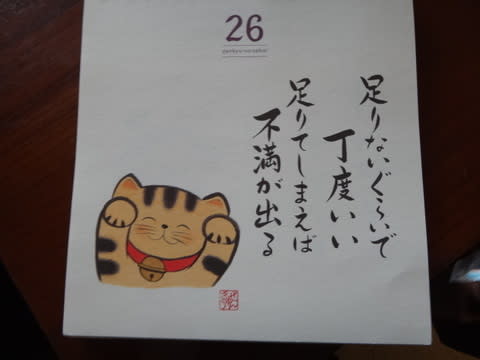 26
足りないぐらいで
丁度いい
足りてしまえば
不満が出る